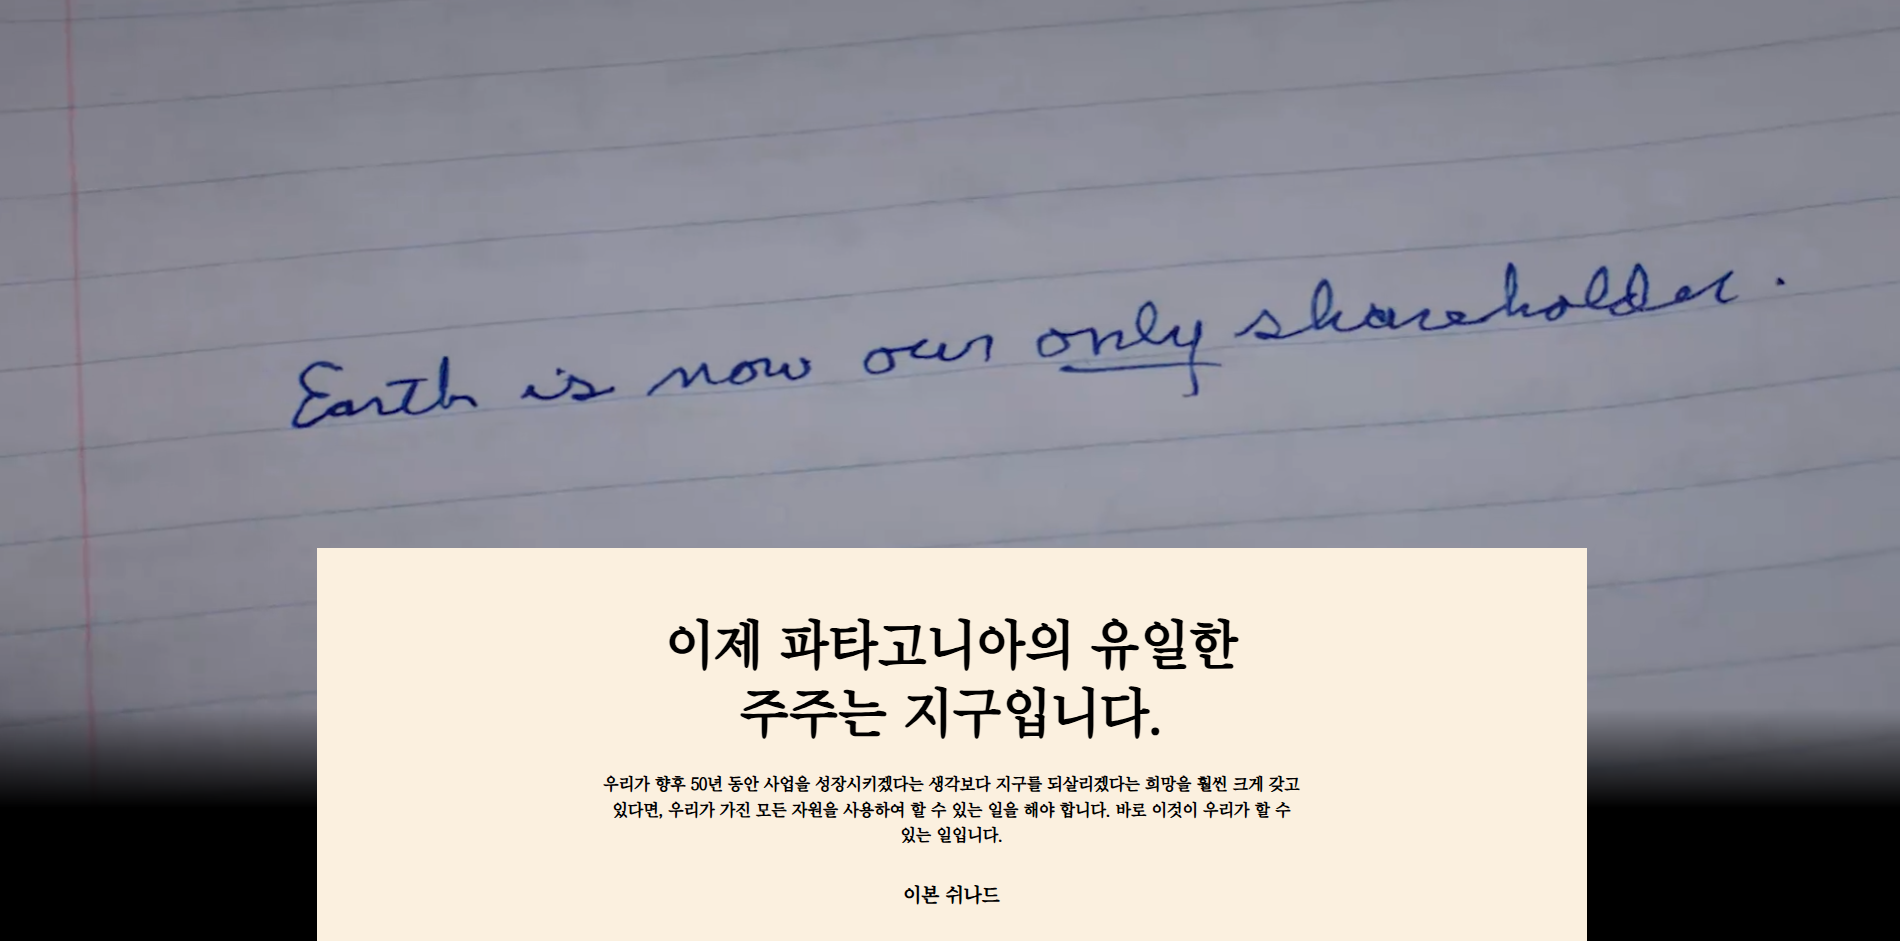 Earth is now our only shareholder.
이제 파타고니아의 유일한
주주는 지구입니다.
우리가 향후 50년 동안 사업을 성장시키겠다는 생각보다 지구를 되살리겠다는 희망을 훨씬 크게 갖고
있다면, 우리가 가진 모든 자원을 사용하여 할 수 있는 일을 해야 합니다. 바로 이것이 우리가 할 수
있는 일입니다.
이본 쉬나드